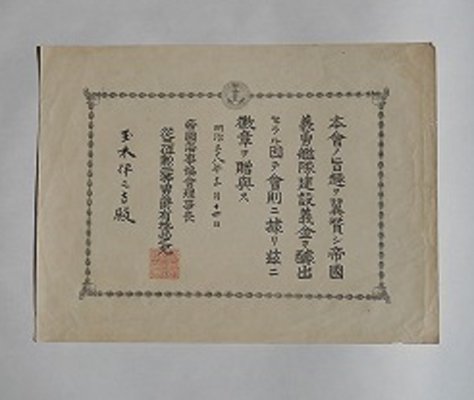 本會ノ旨趣ヲ翼賛シ帝國
義勇艦隊建設義金ヲ醵出
セラル因テ會則ニ據リ茲ニ
徽章ヲ贈與ス
明治 年 月 日
帝國海事協會理事長
男爵有地品之允
玉木伊之吉殿